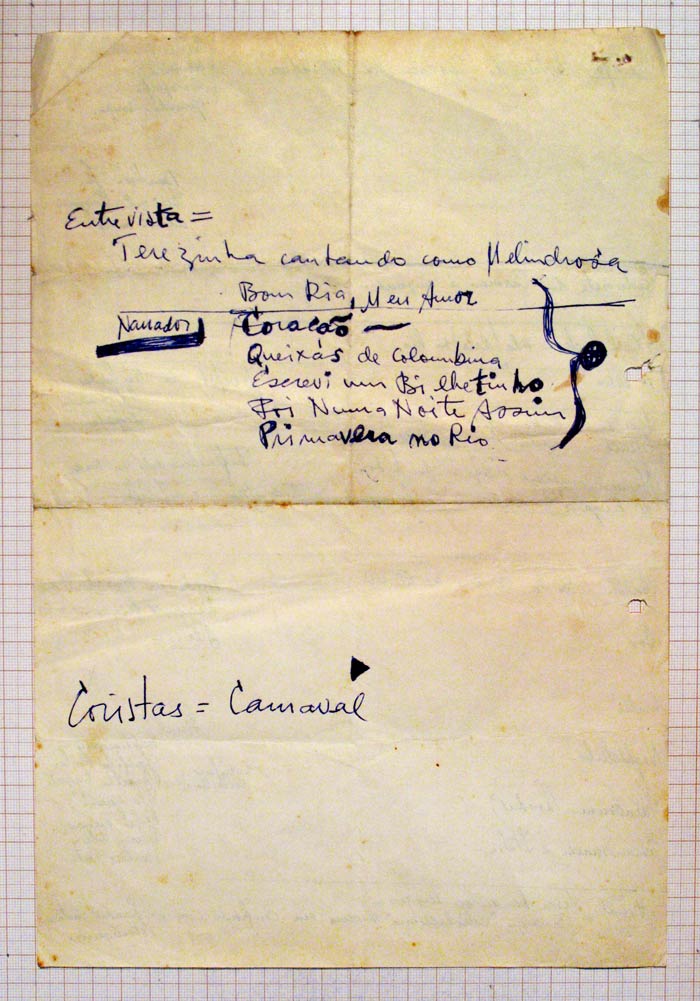 Entrevista =
Terezinha cantando como Melindrosa
Bom Dia, Meu Amor
Narrador Coração —
Queixas de Colombina
Escrevi um Bilhetinho
Foi Numa Noite Assim
Primavera no Rio
Coristas = Carnaval